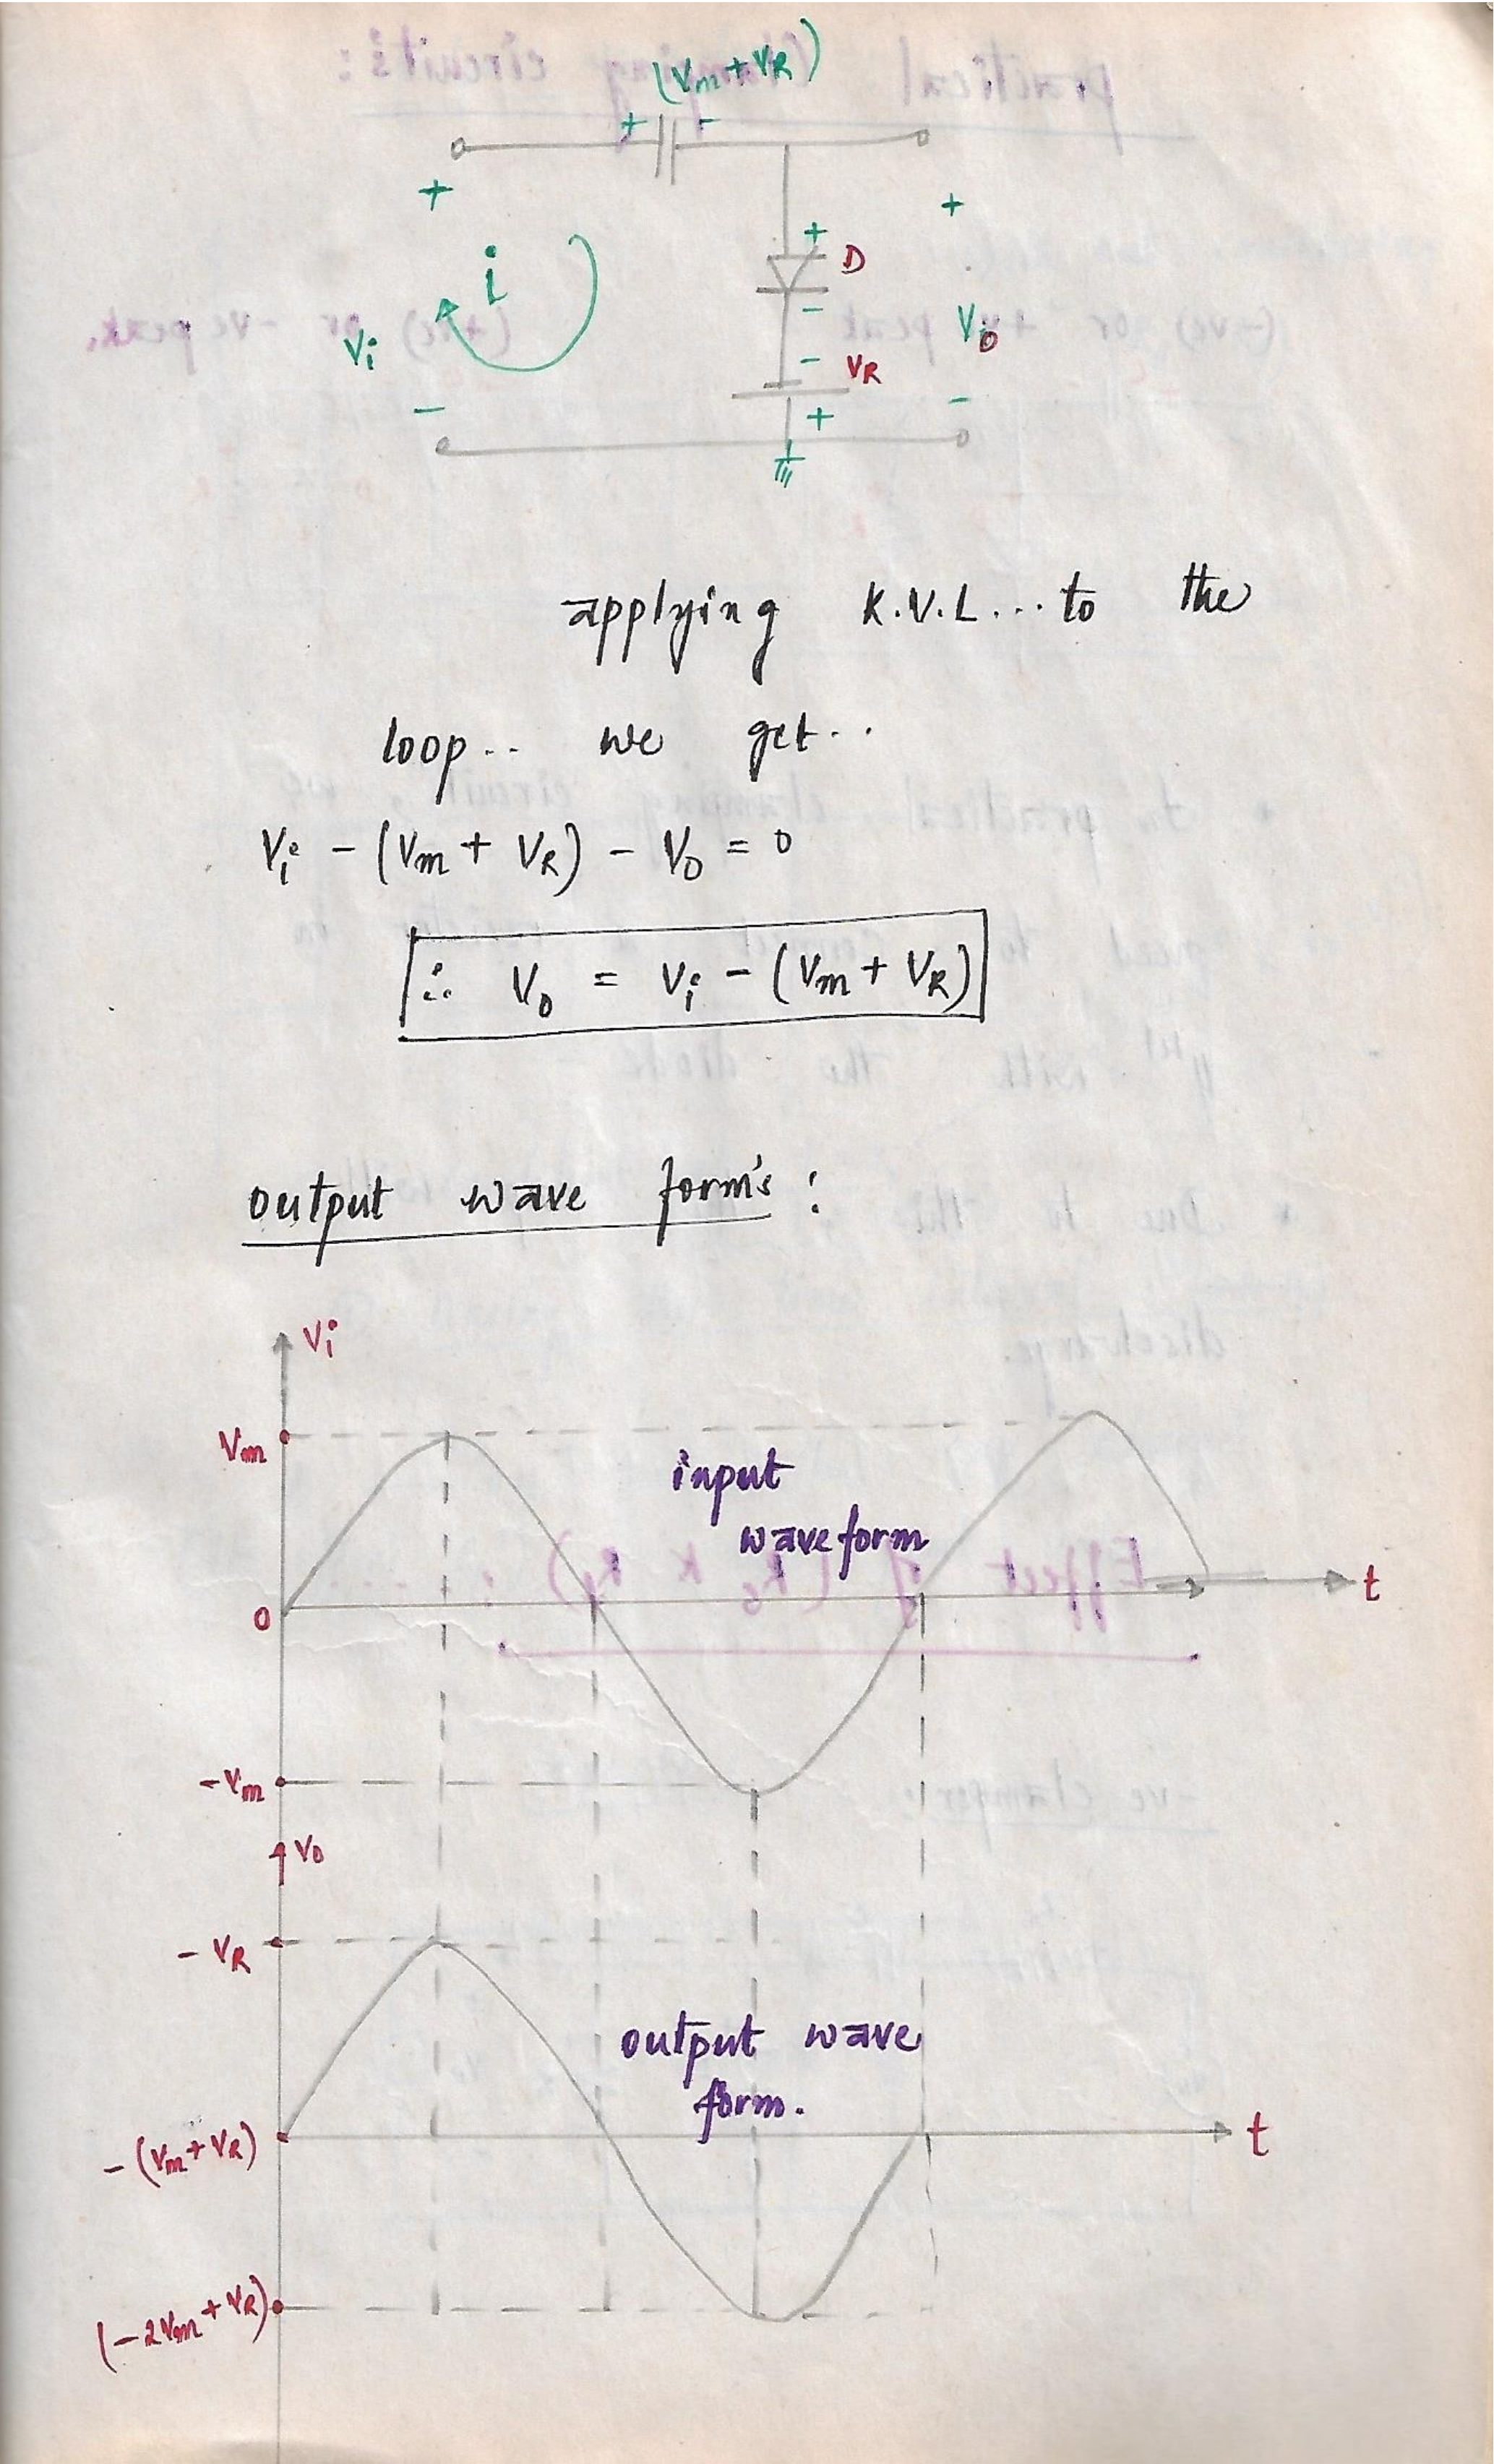 (Vm + VR)
+ -
+ +
i
+
D
-
Vi
V0
- VR
- + -
applying K.V.L... to the
loop.. we get..
Vi - (Vm + VR) - V0 = 0
∴ V0 = Vi - (Vm + VR)
output wave form's :
Vi
Vm
input
waveform
0
t
-Vm
V0
- VR
output wave
form.
-(Vm+VR)
t
(-2Vm+VR)